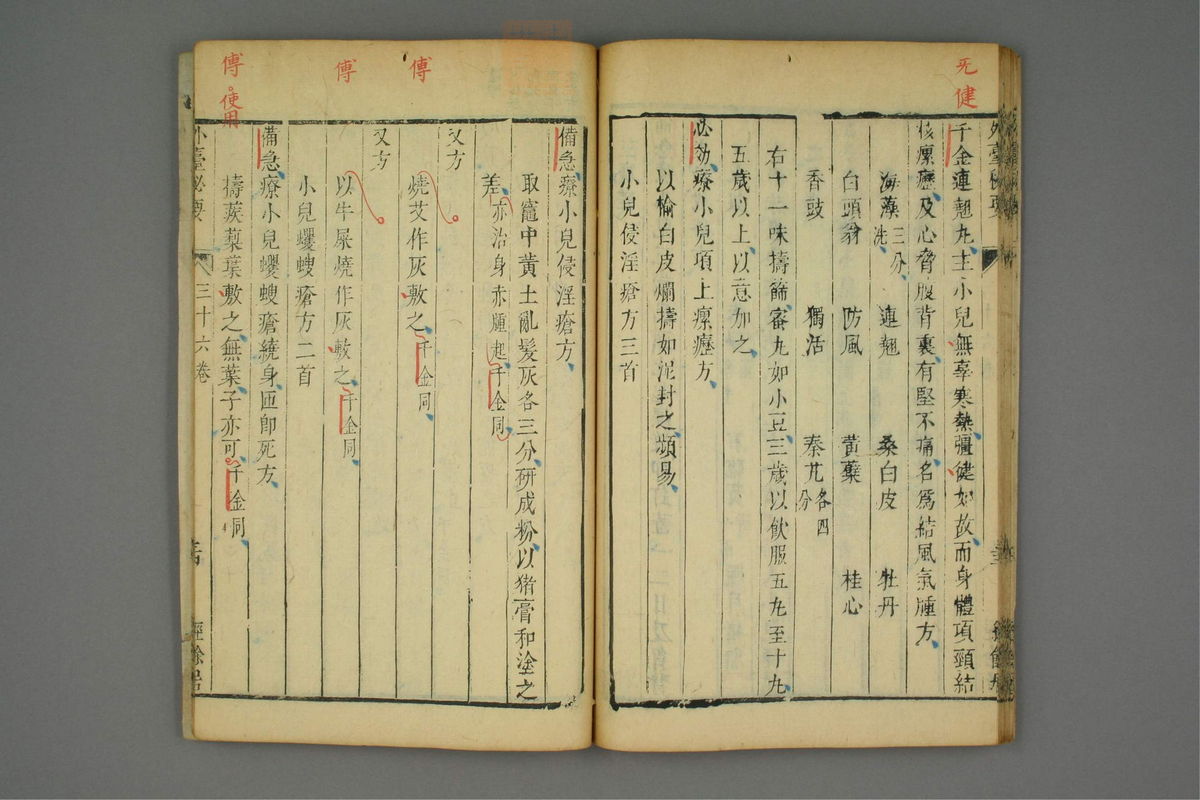 无
健
千金連翹丸主小兒無辜寒熱彊健如故而身體項頸結
核瘰癧及心脅腹背裏有堅不痛名爲結風氣腫方
海藻三分洗 連翹 桑白皮 牡丹
白頭翁 防風 黃蘗 桂心
香豉 獨活 秦艽各四分
右十一味擣篩蜜丸如小豆三歲以飲服五丸至十丸
五歲以上以意加之
必効療小兒項上瘰癧方
以榆白皮爛擣如泥封之頻易
小兒侵淫瘡方三首
備急療小兒侵淫瘡方
取竈中黃土亂髮灰各三分研成粉以猪膏和塗之
差亦治身赤腫起千金同
又方
燒艾作灰敷之千金同
又方
以牛屎燒作灰敷之千金同
小兒蠼螋瘡方二首
備急療小兒蠼螋瘡繞身匝即死方
擣蒺䔧葉敷之無葉子亦可千金同
傅
傅
傅
使用
外臺秘要
三十六卷
經餘居